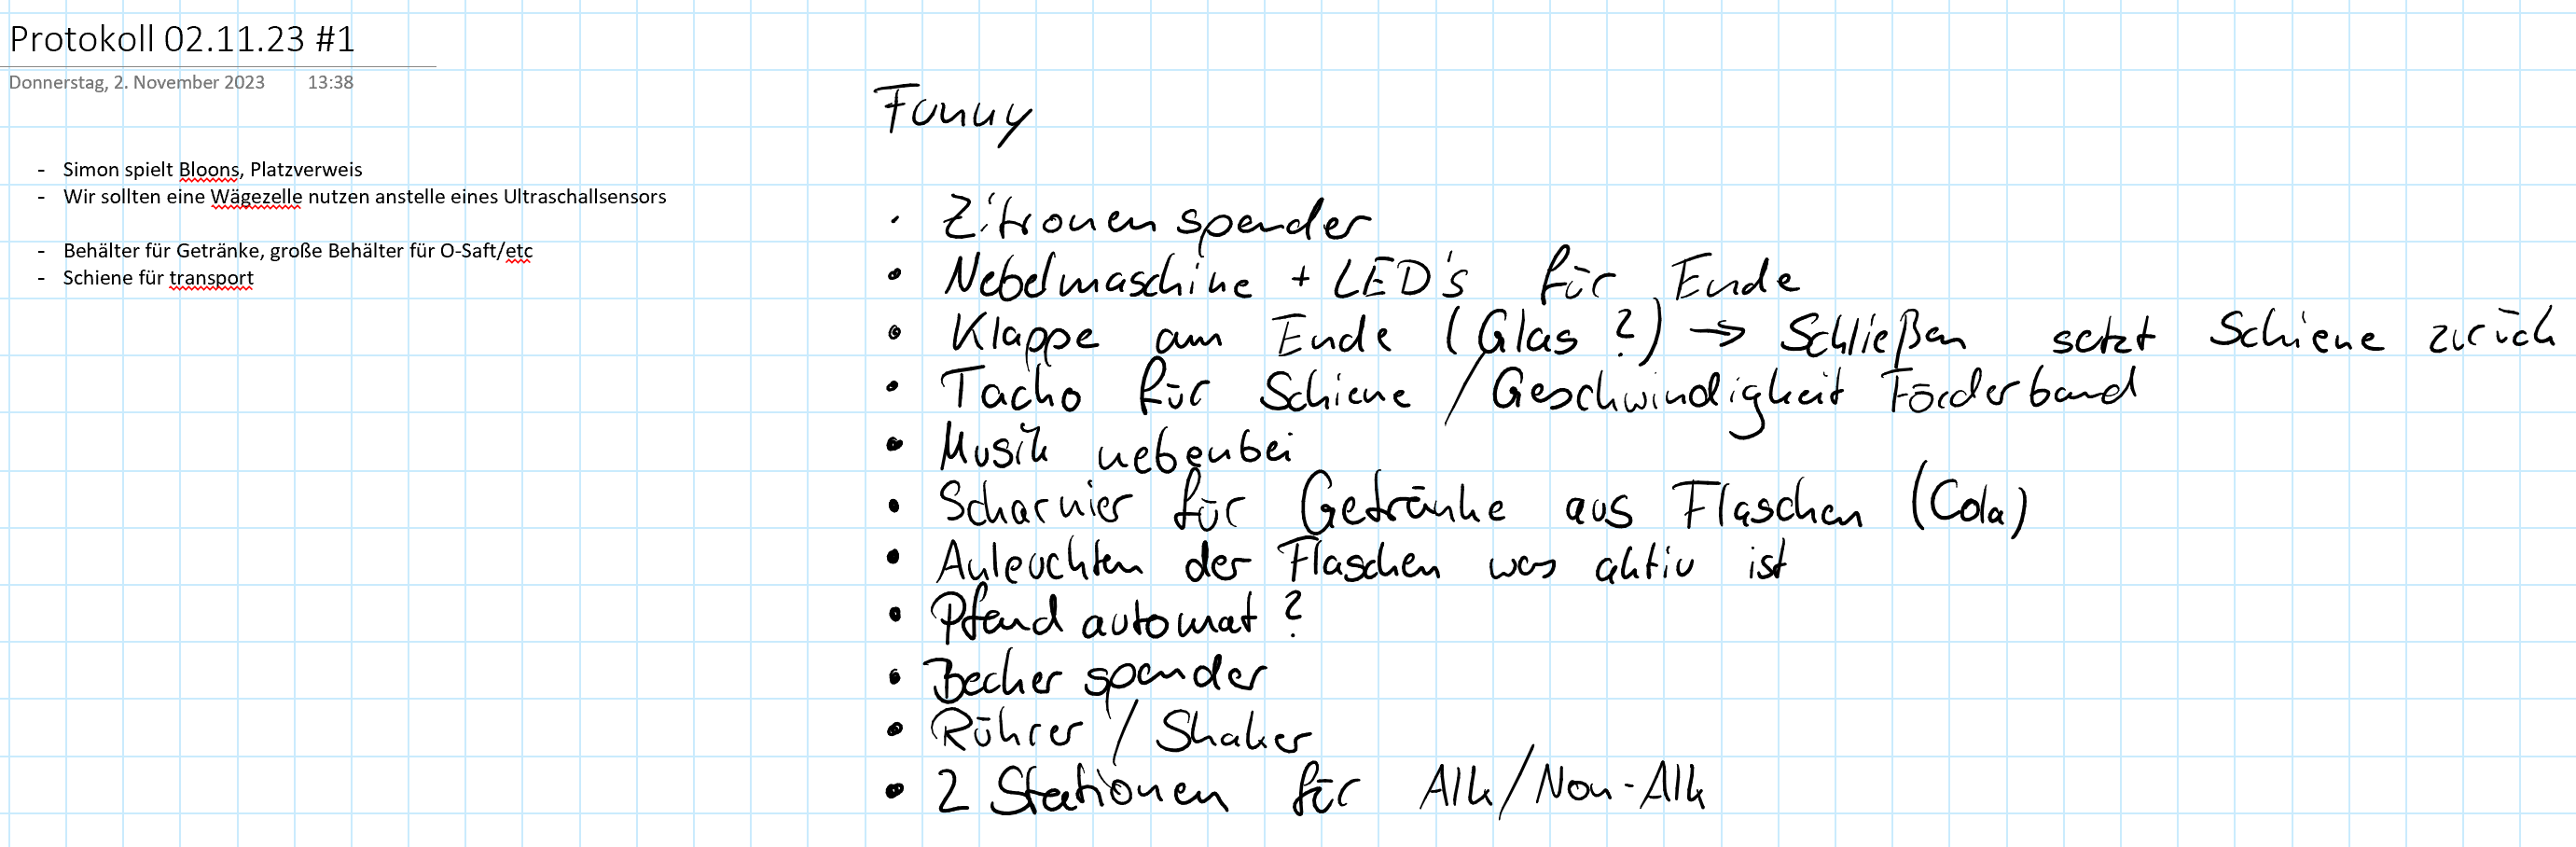 Protokoll 02.11.23 #1
Donnerstag, 2. November 2023 13:38
- Simon spielt Bloons, Platzverweis
- Wir sollten eine Wägezelle nutzen anstelle eines Ultraschallsensors
- Behälter für Getränke, große Behälter für O-Saft/etc
- Schiene für transport
Funny
• Zitronenspender
• Nebelmaschine + LED's für Ende
• Klappe am Ende (Glas?) → Schließen setzt Schiene zurück
• Tacho für Schiene / Geschwindigkeit Förderband
• Musik nebenbei
• Scharnier für Getränke aus Flaschen (Cola)
• Anleuchten der Flaschen was aktiv ist
• Pfandautomat?
• Becherspender
• Rührer / Shaker
• 2 Stationen für Alk/Non-Alk